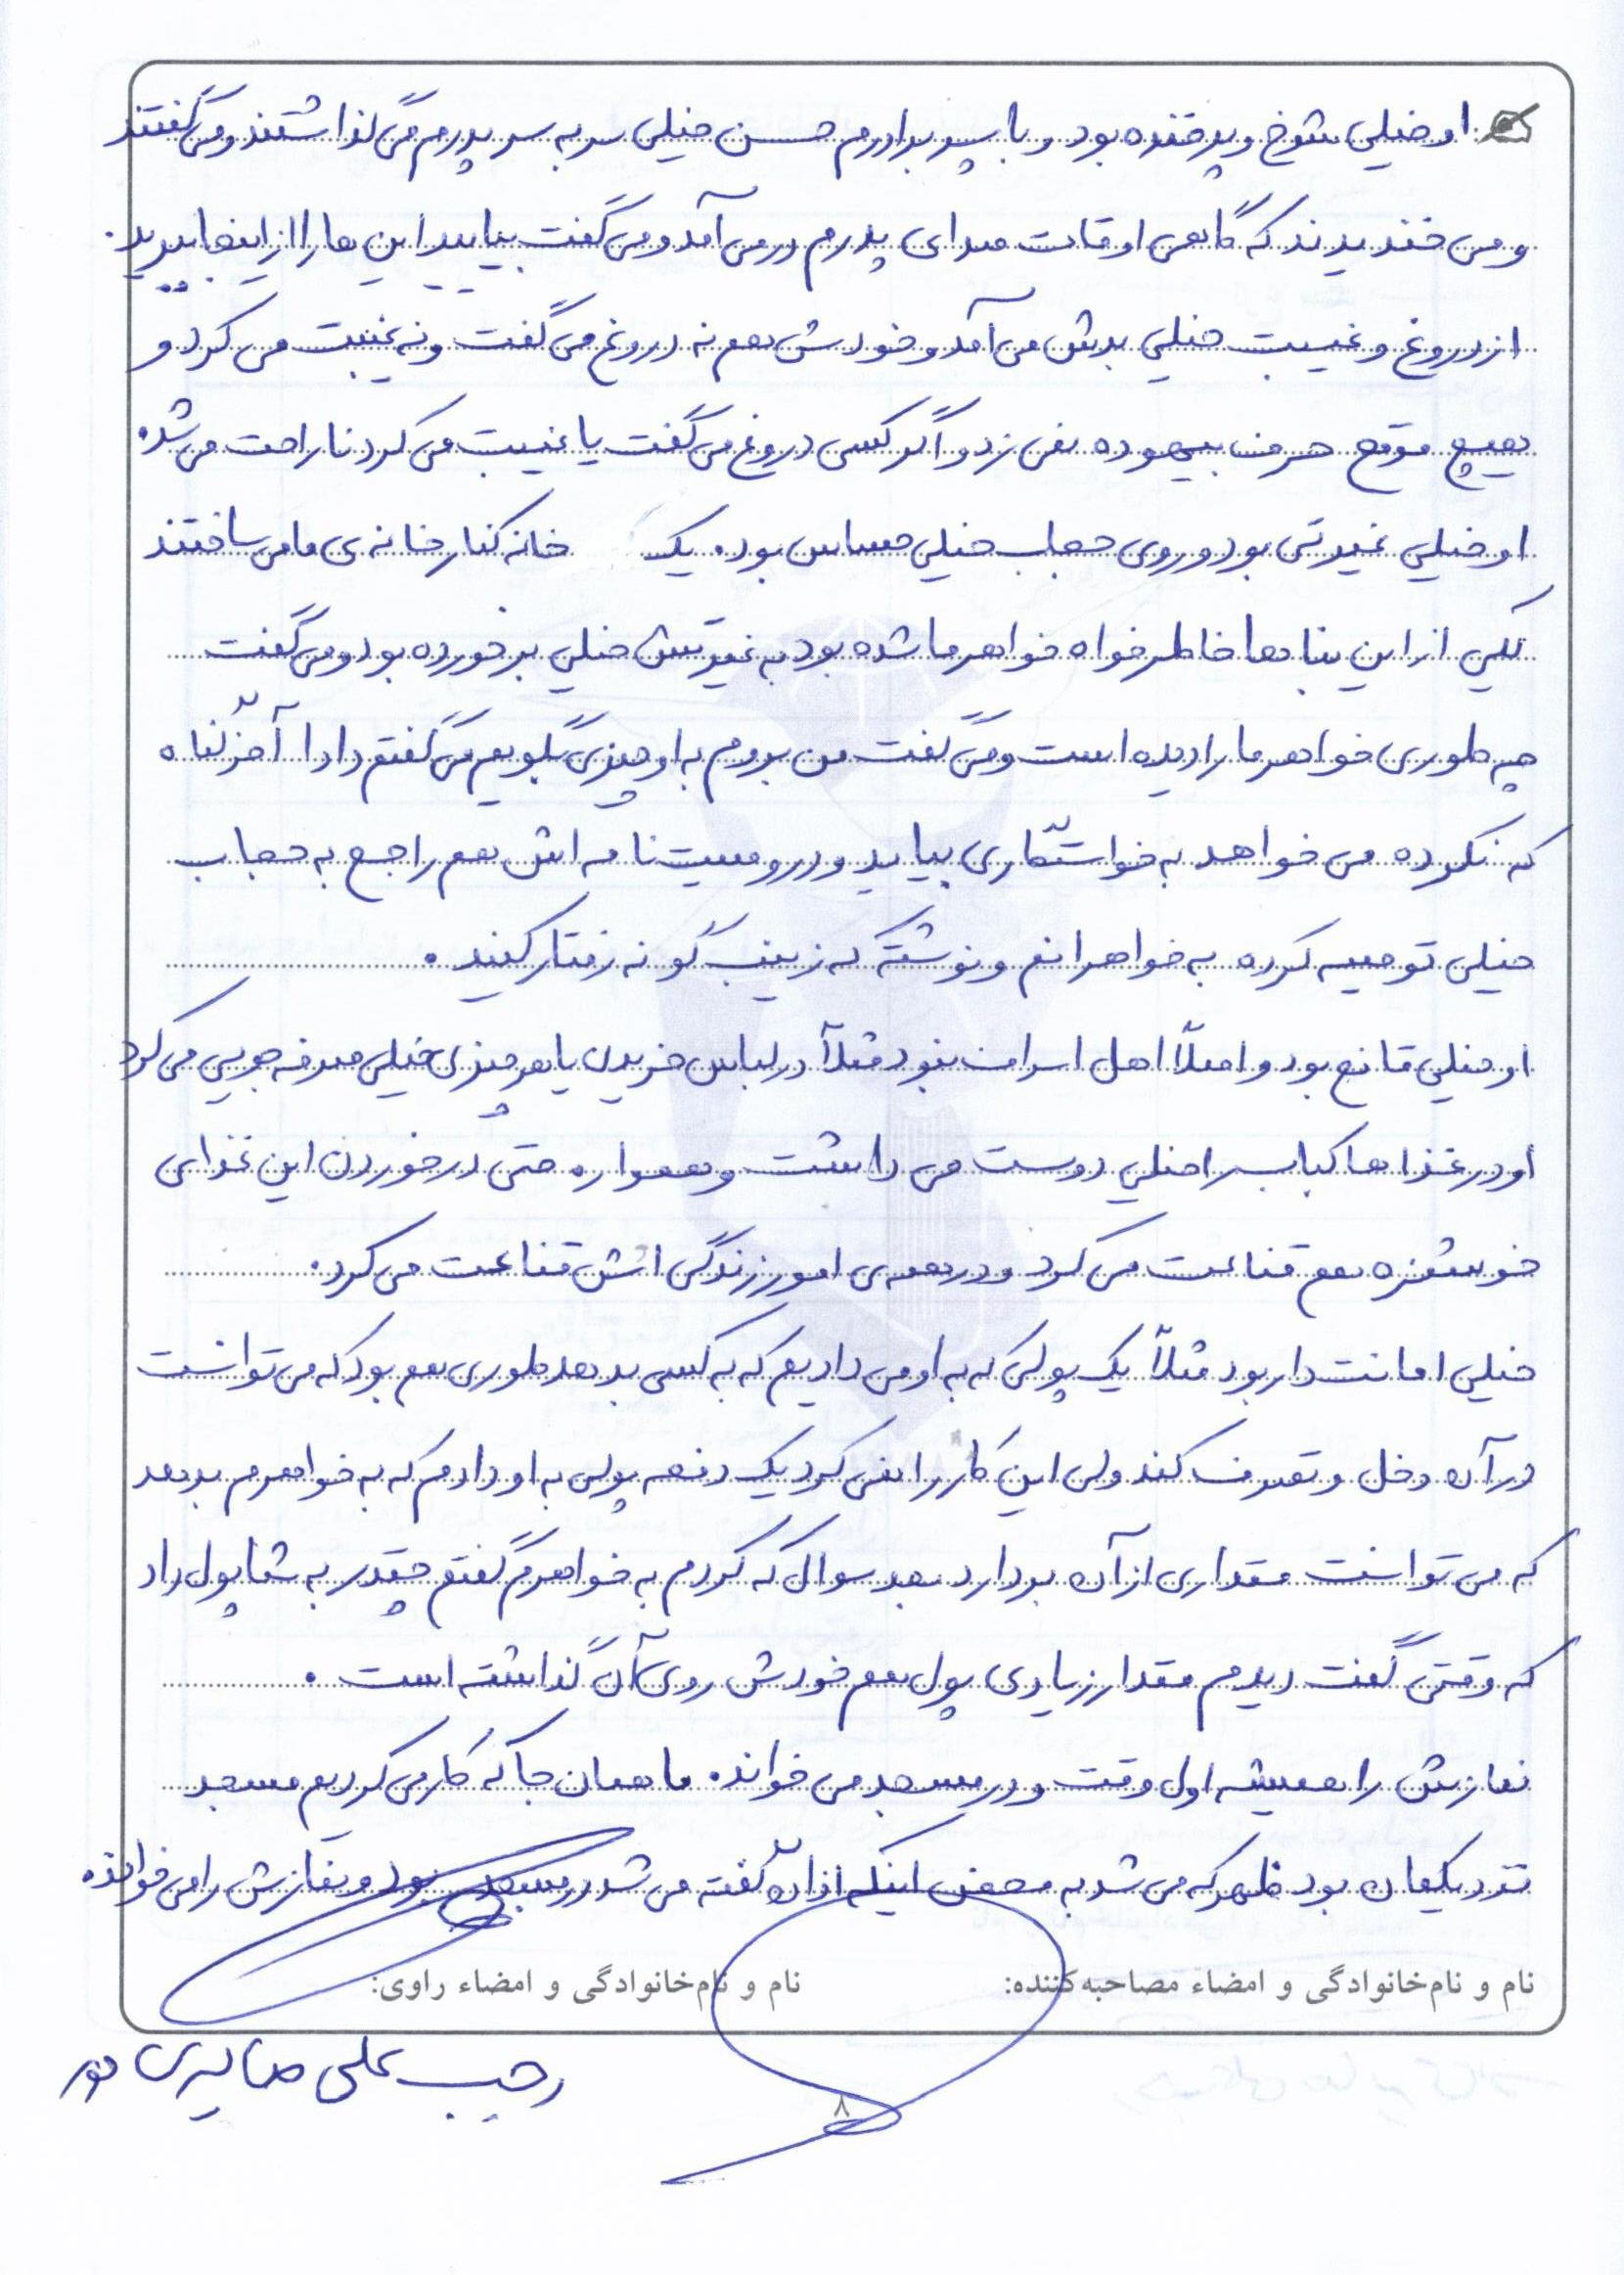 او خیلی شوخ و پرخنده بود و با پسر برادرم حسن خیلی سر به سر پدرم می گذاشتند و می گفتند
و می خندیدند که گاهی اوقات صدای پدرم در می آمد و می گفت بیایید این ها را از اینجا ببرید.
از دروغ و غیبت خیلی بدش می آمد و خودش هم نه دروغ می گفت و نه غیبت می کرد و
هیچ موقع حرف بیهوده نمی زد و اگر کسی دروغ می گفت یا غیبت می کرد ناراحت می شد.
او خیلی غیرتی بود و روی حجاب خیلی حساس بود. یک خانه کنار خانه ی ما می ساختند
یکی از این بناها خاطرخواه خواهر ما شده بود به غیرتش خیلی برخورده بود و می گفت
چه طوری خواهر ما را دیده است و می گفت من بروم به او چیزی بگویم می گفتم دادا آخر گناه
که نکرده می خواهد به خواستگاری بیاید و در وصیت نامه اش هم راجع به حجاب
خیلی توصیه کرده به خواهرانم و نوشته که زینب گونه رفتار کنید.
او خیلی قانع بود و اصلاً اهل اسراف نبود مثلاً در لباس خریدن یا هر چیزی خیلی صرفه جویی می کرد
او در غذاها کباب را خیلی دوست می داشت و همواره حتی در خوردن این غذای
خوشمزه هم قناعت می کرد و در همه ی امور زندگی اش قناعت می کرد.
خیلی امانت دار بود مثلاً یک پولی که به او می دادیم که به کسی بدهد طوری هم بود که می توانست
در آن دخل و تصرف کند ولی این کار را نمی کرد یک دفعه پولی به او دادم که به خواهرم بدهد
که می توانست مقداری از آن بردارد بعد سوال که کردم به خواهرم گفتم چقدر به شما پول داد
که وقتی گفت دیدم مقدار زیادی پول هم خودش روی آن گذاشته است.
نمازش را همیشه اول وقت و در مسجد می خواند. ما همان جا که کار می کردیم مسجد
نزدیکمان بود ظهر که می شد به محض اینکه اذان گفته می شد در مسجد بود و نمازش را می خواند.
نام و نام‌خانوادگی و امضاء مصاحبه‌کننده:
نام و نام‌خانوادگی و امضاء راوی:
رجب علی صابری پور
۸